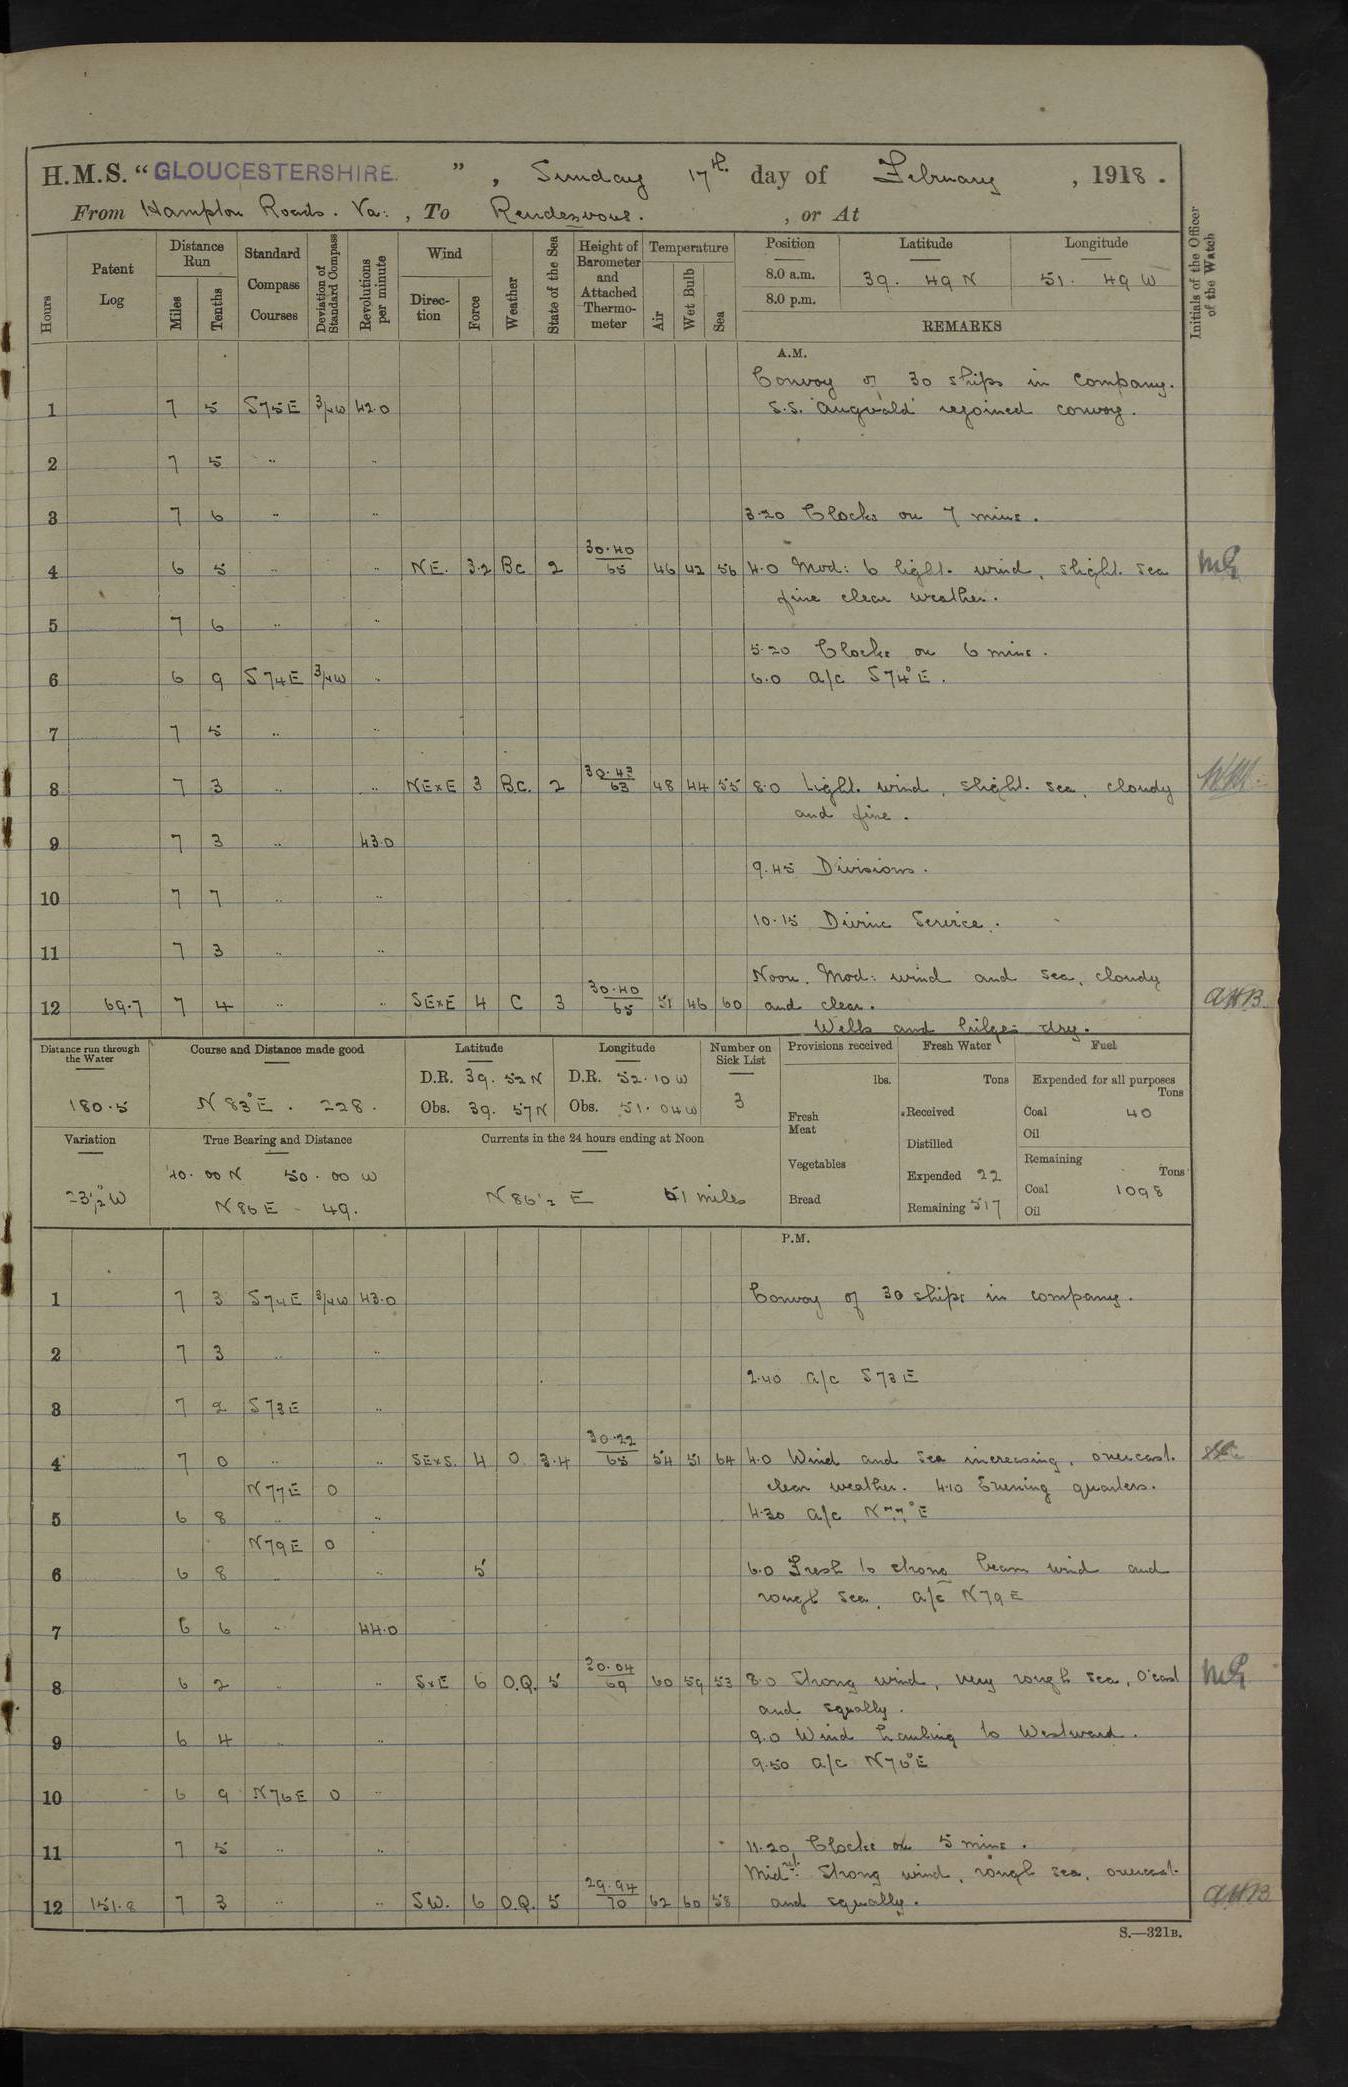 H.M.S. “GLOUCESTERSHIRE.”, Sunday 17th. day of February, 1918.
From Hampton Roads. Va:, To Rendezvous., or At
Hours
Patent Log
Distance Run
Miles
Tenths
Standard Compass Courses
Deviation of Standard Compass
Revolutions per minute
Wind
Direction
Force
Weather
State of the Sea
Height of Barometer and Attached Thermometer
Temperature
Air
Wet Bulb
Sea
Position Latitude Longitude
8.0 a.m. 39. 49 N 51. 49 W
8.0 p.m.
REMARKS
Initials of the Officer of the Watch
A.M.
Convoy of 30 ships in company.
1 7 5 S75E 3/4W 42.0 S.S. 'Augvald' rejoined convoy.
2 7 5 " "
3 7 6 " " 3.20 Clocks on 7 mins.
4 6 5 " " NE. 3.2 Bc 2 30.40/65 46 42 56 4.0 Mod: to light wind, slight sea
fine clear weather.
5 7 6 " "
5.20 Clocks on 6 mins.
6 6 9 S74E 3/4W " 6.0 a/c S74°E.
7 7 5 " "
8 7 3 " " NExE 3 B.C. 2 30.43/63 48 44 55 8.0 Light wind, slight sea, cloudy
and fine.
9 7 3 " 43.0
9.45 Divisions.
10 7 7 " "
10.15 Divine Service.
11 7 3 " "
Noon. Mod: wind and sea, cloudy
12 69.7 7 4 " " SExE 4 C 3 30.40/65 51 46 60 and clear. AHB.
Wells and bilges dry.
Distance run through the Water
180.5
Course and Distance made good
N 83°E. 228.
Latitude
D.R. 39. 52 N
Obs. 39. 57 N
Longitude
D.R. 52. 10 W
Obs. 51. 04 W
Number on Sick List
3
Provisions received
lbs.
Fresh Meat
Vegetables
Bread
Fresh Water
Tons
Received
Distilled
Expended 22
Remaining 517
Fuel
Expended for all purposes
Tons
Coal 40
Oil
Remaining
Tons
Coal 1098
Oil
Variation
23 1/2° W
True Bearing and Distance
40. 00 N 50. 00 W
N 86 E - 49.
Currents in the 24 hours ending at Noon
N 86 1/2 E 51 miles
P.M.
1 7 3 S74E 3/4W 43.0 Convoy of 30 ships in company.
2 7 3 " "
2.40 a/c S73E
3 7 2 S73E "
4 7 0 " " SExS. 4 O 3.4 30.22/65 54 51 64 4.0 Wind and sea increasing, overcast.
N77E 0 clear weather. 4.10 Evening quarters.
5 6 8 " " 4.30 a/c N77°E
N79E 0
6 6 8 " " 5 6.0 Fresh to strong beam wind and
rough sea. a/c N79E
7 6 6 " 44.0
8 6 2 " " SxE 6 O.Q. 5 30.04/69 60 59 53 8.0 Strong wind, very rough sea, O'cast
and squally.
9 6 4 " " 9.0 Wind hauling to Westward.
9.50 a/c N76°E
10 6 9 N76E 0 "
11 7 5 " " 11.20 Clocks on 5 mins.
Midnt: Strong wind, rough sea, overcast
12 151.8 7 3 " " SW. 6 O.Q. 5 29.94/70 62 60 58 and squally. AHB
S.—321B.